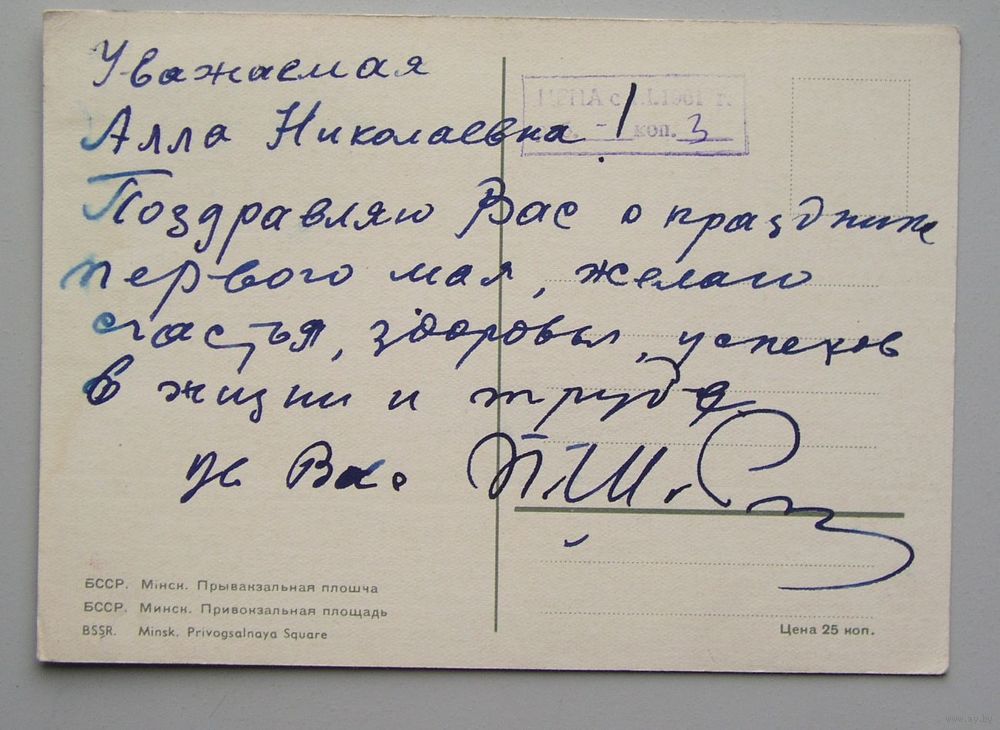 Уважаемая
Алла Николаевна!
Поздравляю Вас с праздником
первого мая, желаю
счастья, здоровья, успехов
в жизни и труде
Ув. Вас
ЦЕНА с 1.I.1961 г.
коп. 3
БССР. Мінск. Прывакзальная плошча
БССР. Минск. Привокзальная площадь
BSSR. Minsk. Privogsalnaya Square
Цена 25 коп.
www.ay.by